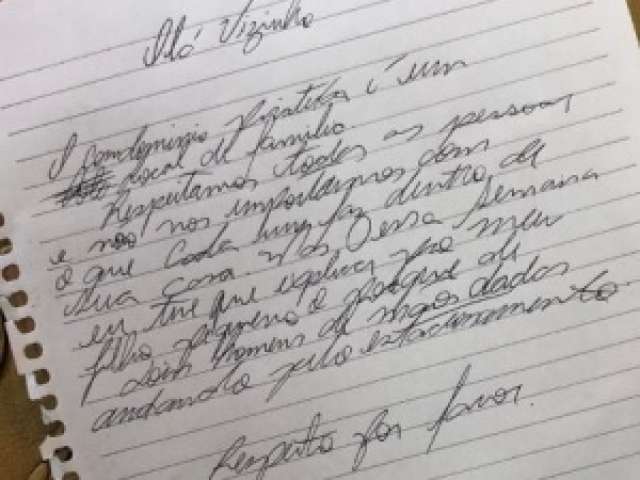 Alô Vizinho
O Condomínio Piratika é um
local de família.
Respeitamos todos as pessoas
e não nos importamos com
o que cada um faz dentro de
sua casa. Mas essa semana
eu tive que explicar pro meu
filho pequeno o porquê de
dois homens de mãos dadas
andando pelo estacionamento
Respeito por favor.